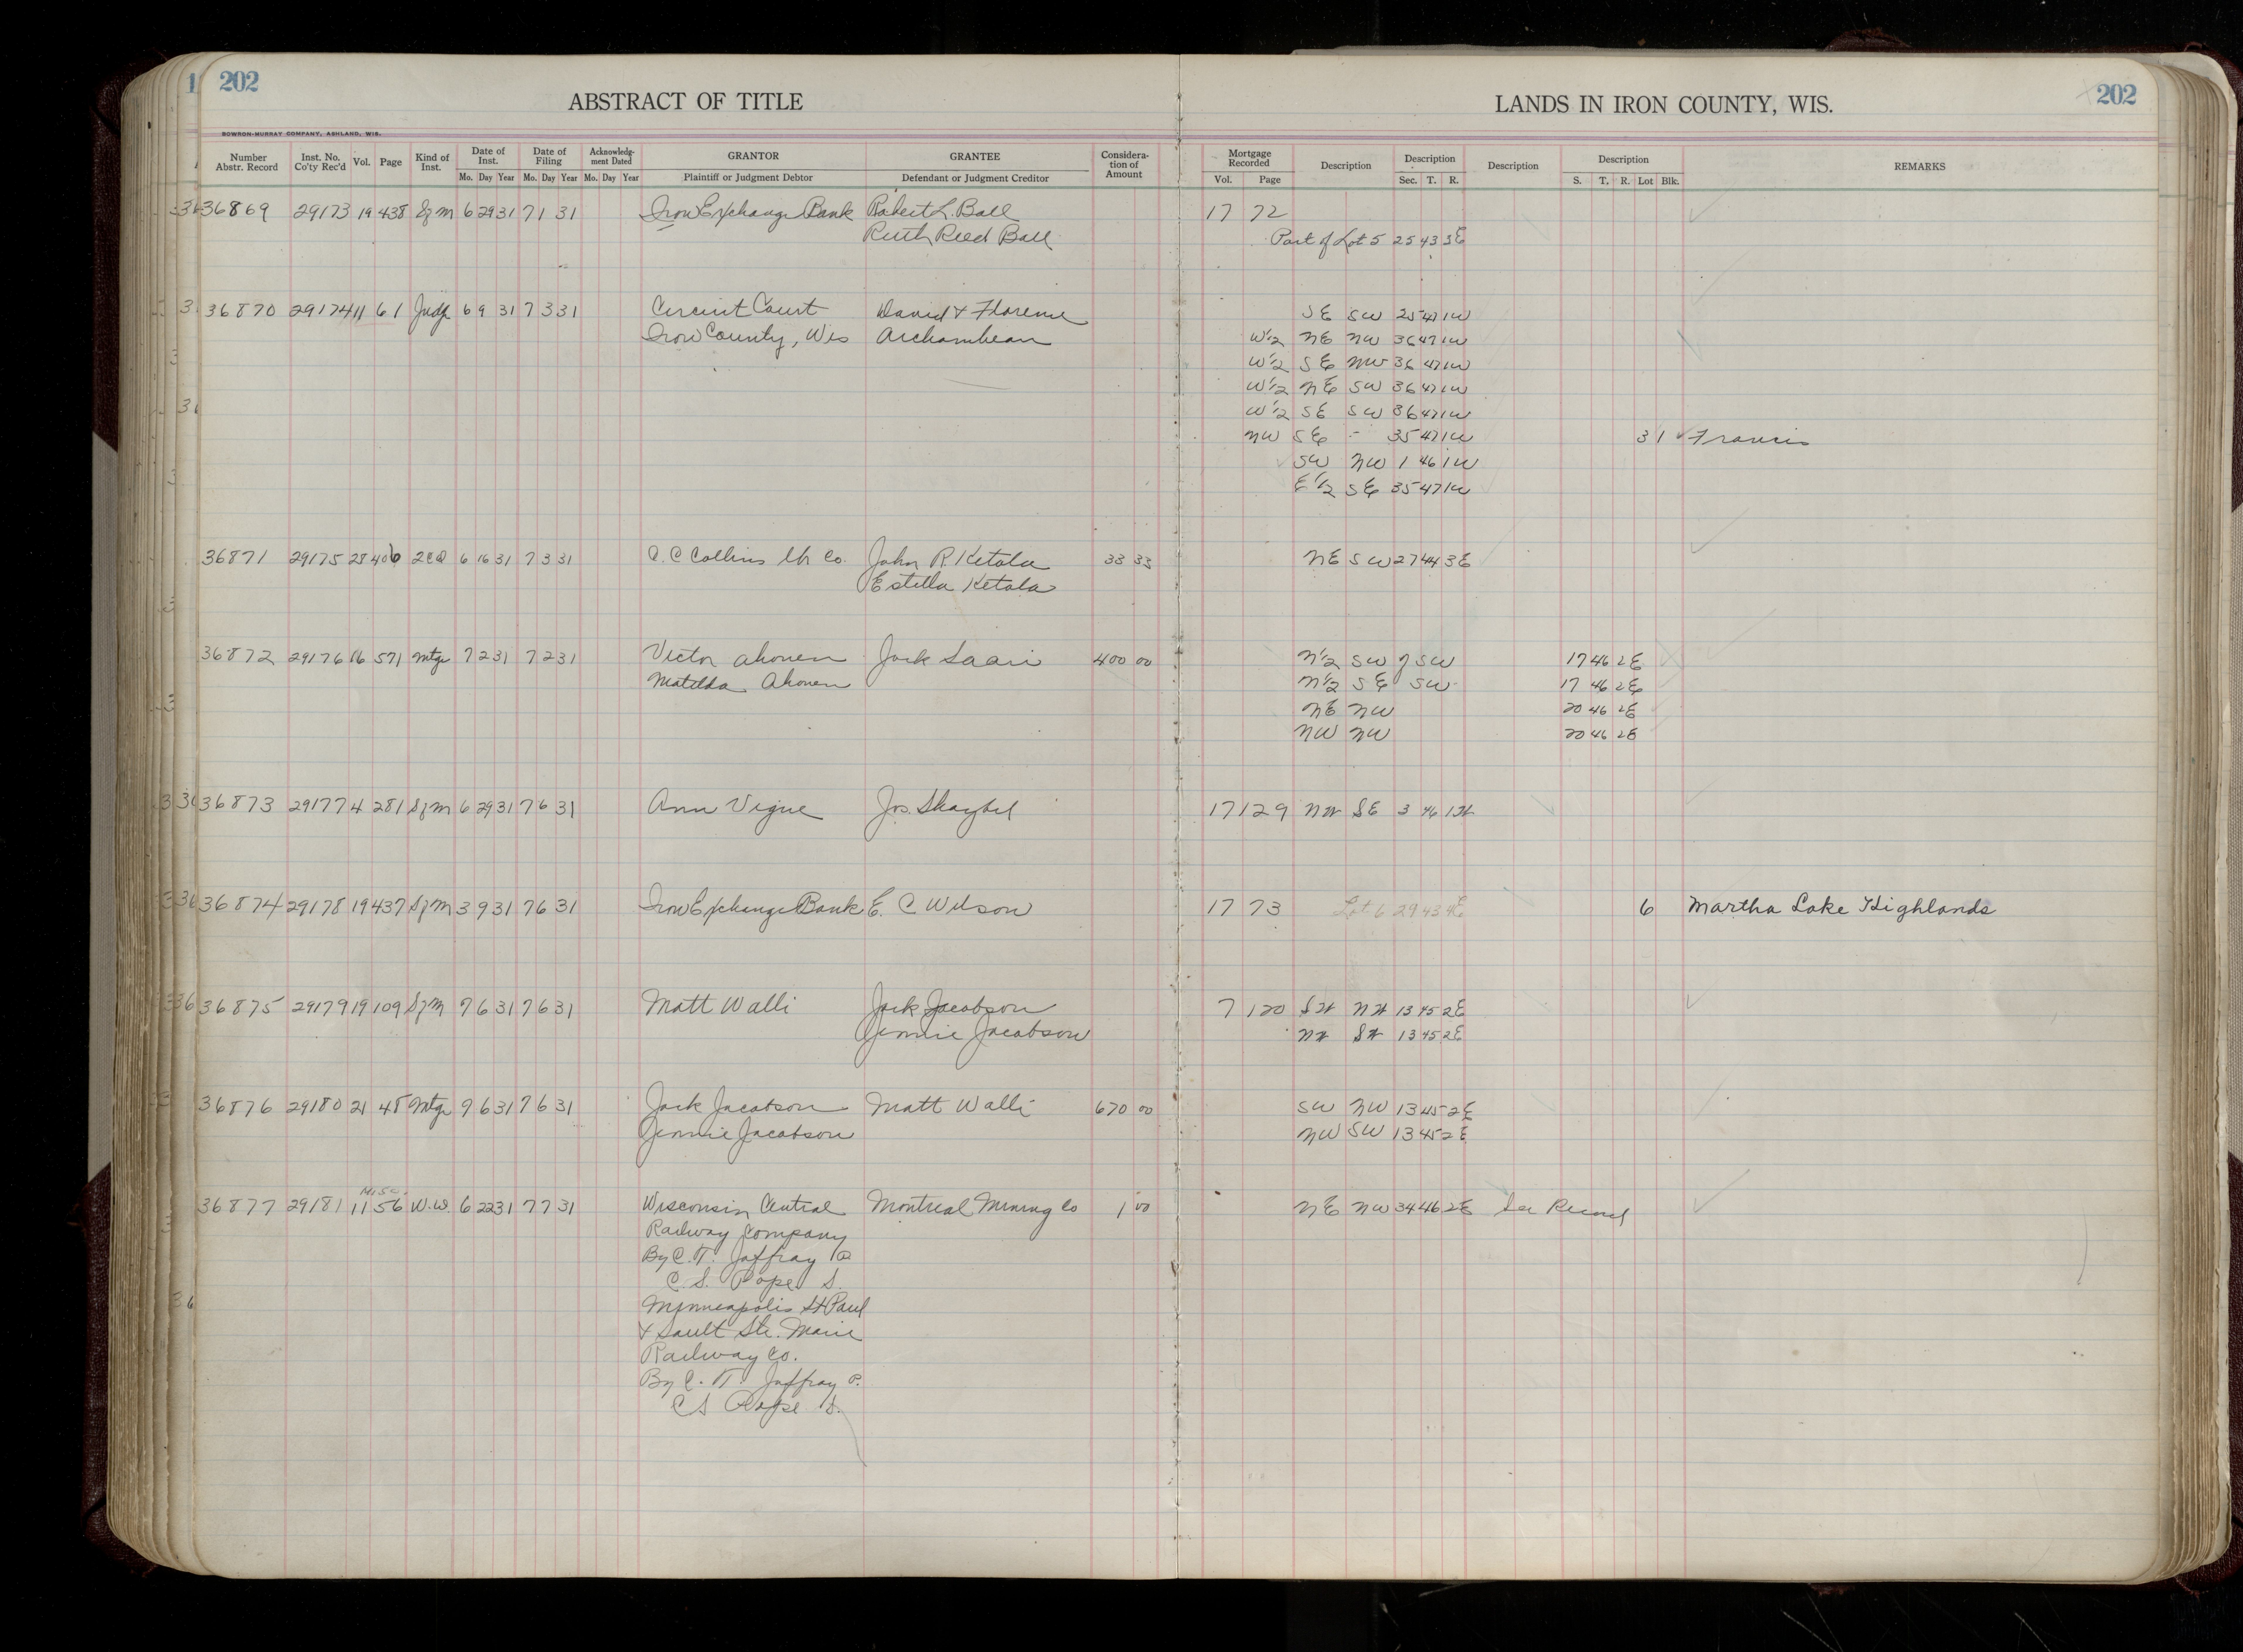 202
ABSTRACT OF TITLE
LANDS IN IRON COUNTY, WIS.
202
BOWRON-MURRAY COMPANY, ASHLAND, WIS.
Number Abstr. Record Inst. No. Co'ty Rec'd Vol. Page Kind of Inst. Date of Inst. Date of Filing Acknowledg-ment Dated GRANTOR GRANTEE Considera-tion of Amount Mortgage Recorded Description Description Description Description REMARKS
Mo. Day Year Mo. Day Year Mo. Day Year Plaintiff or Judgment Debtor Defendant or Judgment Creditor Vol. Page Sec. T. R. S. T. R. Lot Blk.
36869 29173 19 438 Sfm 6 29 31 7 1 31 Iron Exchange Bank Robert L. Ball 17 72
Ruth Reed Ball Part of Lot 5 25 43 3E
36870 29174 11 61 Judg 6 9 31 7 3 31 Circuit Court David & Florence SE SW 25 47 1W
Iron County, Wis Archambeau W1/2 NE NW 36 47 1W
W1/2 SE NW 36 47 1W
W1/2 NE SW 36 47 1W
W1/2 SE SW 36 47 1W
NW SE - 35 47 1W 3 1 Francis
SW NW 1 46 1W
E1/2 SE 35 47 1W
36871 29175 28 406 2CD 6 16 31 7 3 31 C. C Collins Lbr Co. John R Ketola 33 33 NE SW 27 44 3E
Estella Ketola
36872 29176 16 571 Mtge 7 2 31 7 2 31 Victor Ahonen Jack Saari 400 00 N1/2 SW of SW 17 46 2E
Matilda Ahonen N1/2 SE SW 17 46 2E
NE NW 20 46 2E
NW NW 20 46 2E
36873 29177 4 281 Sfm 6 29 31 7 6 31 Ann Vigue Jos. 17 129 NW SE 3 46 1W
36874 29178 19 437 Sfm 3 9 31 7 6 31 Iron Exchange Bank E. C Wilson 17 73 Lot 6 29 43 4E 6 Martha Lake Highlands
36875 29179 19 109 Sfm 7 6 31 7 6 31 Matt Walli Jack Jacobson 7 120 SW NW 13 45 2E
Jennie Jacobson NW SW 13 45 2E
36876 29180 21 48 Mtge 7 6 31 7 6 31 Jack Jacobson Matt Walli 670 00 SW NW 13 45 2E
Jennie Jacobson NW SW 13 45 2E
Misc.
36877 29181 11 56 W.W. 6 22 31 7 7 31 Wisconsin Central Montreal Mining Co 1 00 NE NW 34 46 2E See Record
Railway Company
By C. T. Jaffray P
C. S. Pope S.
Minneapolis St Paul
& Sault Ste. Marie
Railway Co.
By C. T. Jaffray P.
C S Pope S.